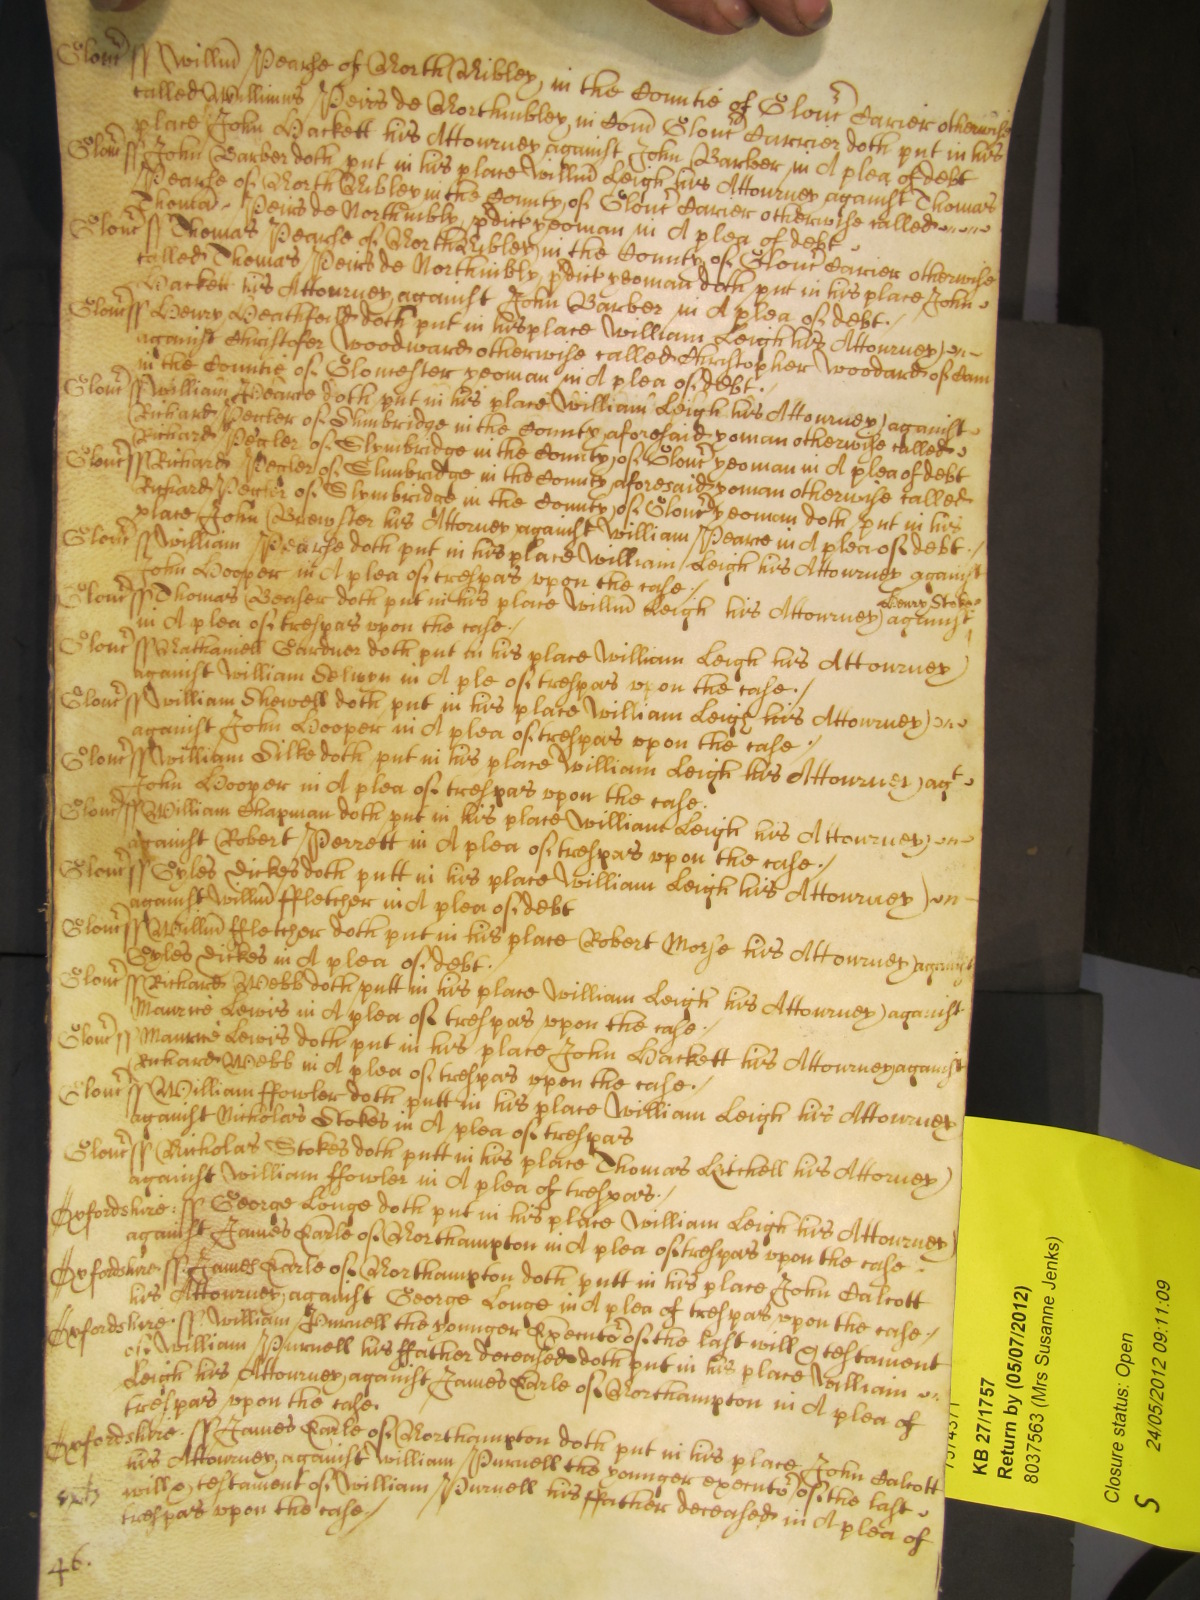 Glouc ss Willm Pearse of North Nibley, in the Countie of Glouc Carier otherwise
called Willimus Peirs de Northnibley, in Com Glouc Carrier doth put in his
place John Hackett his Attourney against John Barber in A plea of debt
Glouc ss John Barber doth put in his place Willm Leigh his Attourney against Thomas
Pearse of North Nibley in the County of Glouc Carier otherwise called
Thomas Peirs de Northnibly, pdict yeoman in A plea of debt
Glouc ss Thomas Pearse of North Nibley in the County of Glouc Carier otherwise
called Thomas Peirs de Northnibly, pdict yeoman doth put in his place John
Hackett his Attourney against John Barber in A plea of debt./
Glouc ss Henry Heathfeild doth put in his place William Leigh his Attourney
against Christofer Woodward otherwise called Christopher Woodard of Cam
in the Countie of Gloucester yeoman in A plea of debt./
Glouc ss William Pearce doth put in his place William Leigh his Attourney against
Richard Pegler of Slimbridge in the County aforesaid yoman otherwise called
Richard Pegler of Slymbridge in the County of Glouc yeoman in A plea of debt
Glouc ss Richard Pegler of Slimbridge in the County aforesaid yoman otherwise called
Richard Pegler of Slymbridge in the County of Glouc yeoman doth put in his
place John Brewster his Attorney against William Pearce in A plea of debt./
Glouc ss William Pearse doth put in his place William Leigh his Attourney against
John Hooper in A plea of trespas upon the case./
Glouc ss Thomas Beaser doth put in his place Willm Leigh his Attourney against Henry Stokes
in A plea of trespas upon the case./
Glouc ss Nathaniell Gardner doth put in his place William Leigh his Attourney
against William Selwyn in A ple of trespas upon the case./
Glouc ss William Shewell doth put in his place William Leigh his Attourney
against John Hooper in A plea of trespas upon the case./
Glouc ss William Silke doth put in his place William Leigh his Attourney agt
John Hooper in A plea of trespas upon the case.
Glouc ss William Chapman doth put in his place William Leigh his Attourney
against Robert Perrett in A plea of trespas upon the case./
Glouc ss Gyles Dickes doth putt in his place William Leigh his Attourney
against Willm ffletcher in A plea of debt
Glouc ss Willm ffletcher doth put in his place Robert Morse his Attourney against
Gyles Dickes in A plea of debt.
Glouc ss Richard Webb doth putt in his place William Leigh his Attourney against
Maurice Lewis in A plea of trespas upon the case./
Glouc ss Maurice Lewis doth put in his place John Hackett his Attourney against
Richard Webb in A plea of trespas upon the case./
Glouc ss William ffowler doth putt in his place William Leigh his Attourney
against Nicholas Stokes in A plea of trespas
Glouc ss Nicholas Stokes doth putt in his place Thomas Letchell his Attorney
against William ffowler in A plea of trespas./
Oxfordshire: ss George Longe doth put in his place William Leigh his Attourney
against James Earle of Northampton in A plea of trespas upon the case:
Oxfordshire ss James Earle of Northampton doth putt in his place John Calcott
his Attourney against George Longe in A plea of trespas upon the case./
Oxfordshire. ss William Purnell the younger Executor of the last will & testament
of William Purnell his ffather deceased doth put in his place William
Leigh his Attourney against James Earle of Northampton in A plea of
trespas upon the case.
Oxfordshire: ss James Earle of Northampton doth put in his place John Calcott
his Attourney against William Purnell the younger executor of the last
will & testament of William Purnell his ffather deceased in A plea of
trespas upon the case./
46.
KB 27/1757
Return by (05/07/2012)
8037563 (Mrs Susanne Jenks)
Closure status: Open
24/05/2012 09:11:09
S